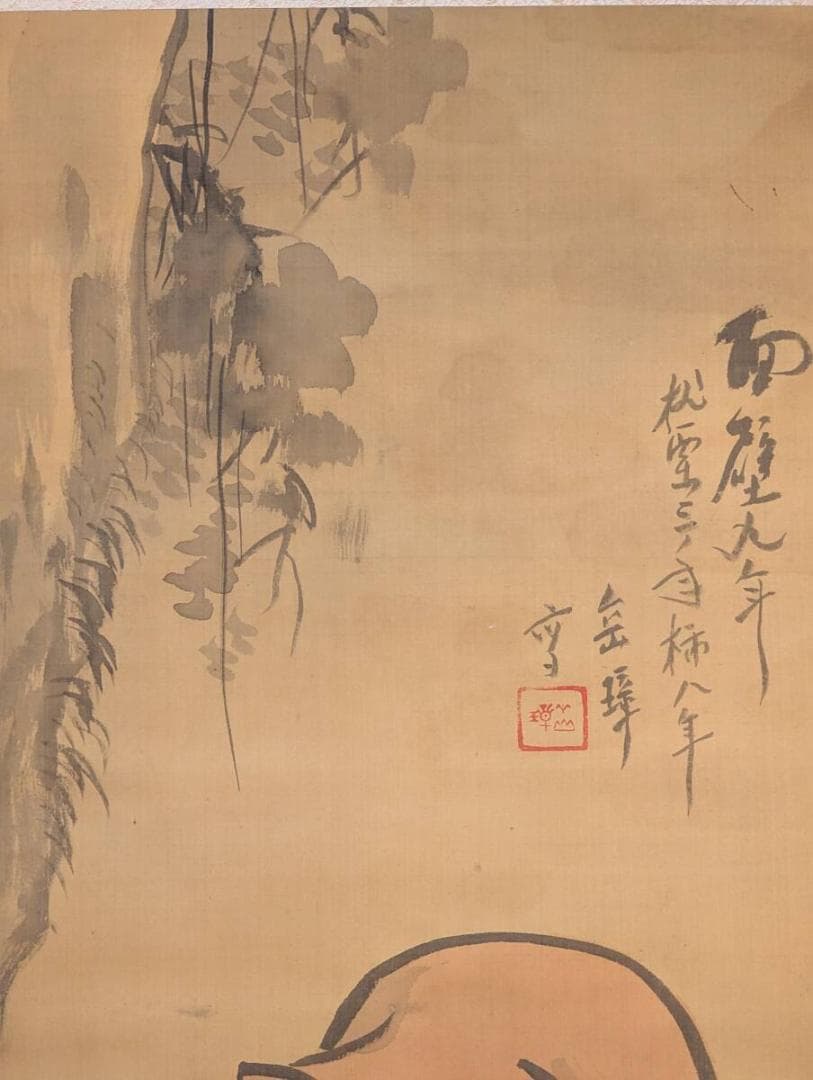 面壁九年
桃栗三年柿八年
岳璋
写